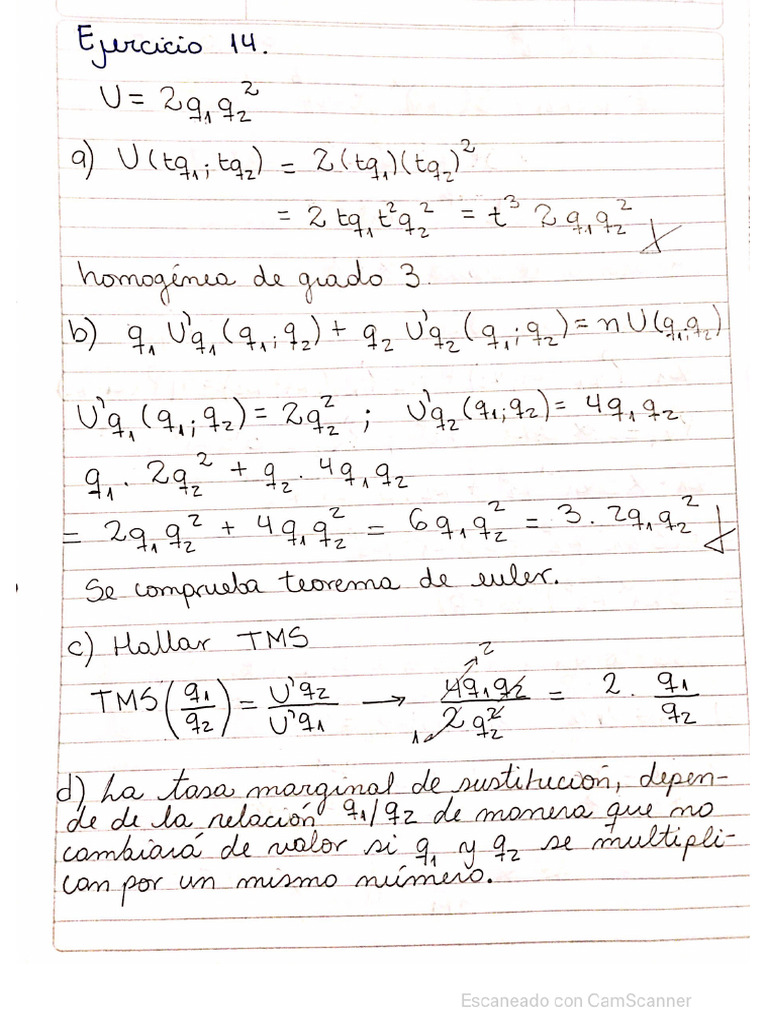 Ejercicio 14.
U = 2q₁q₂²
a) U(tq₁; tq₂) = 2(tq₁)(tq₂)²
= 2tq₁t²q₂² = t³ 2q₁q₂²
homogénea de grado 3.
b) q₁ U'q₁(q₁; q₂) + q₂ U'q₂(q₁; q₂) = n U(q₁; q₂)
U'q₁(q₁; q₂) = 2q₂² ; U'q₂(q₁; q₂) = 4q₁q₂
q₁ · 2q₂² + q₂ · 4q₁q₂
= 2q₁q₂² + 4q₁q₂² = 6q₁q₂² = 3 · 2q₁q₂²
Se comprueba teorema de euler.
c) Hallar TMS
TMS(q₁/q₂) = U'q₂/U'q₁ → 4q₁q₂/2q₂² = 2 · q₁/q₂
2
1
d) La tasa marginal de sustitución, depen-
de de la relación q₁/q₂ de manera que no
cambiará de valor si q₁ y q₂ se multipli-
can por un mismo número.
Escaneado con CamScanner